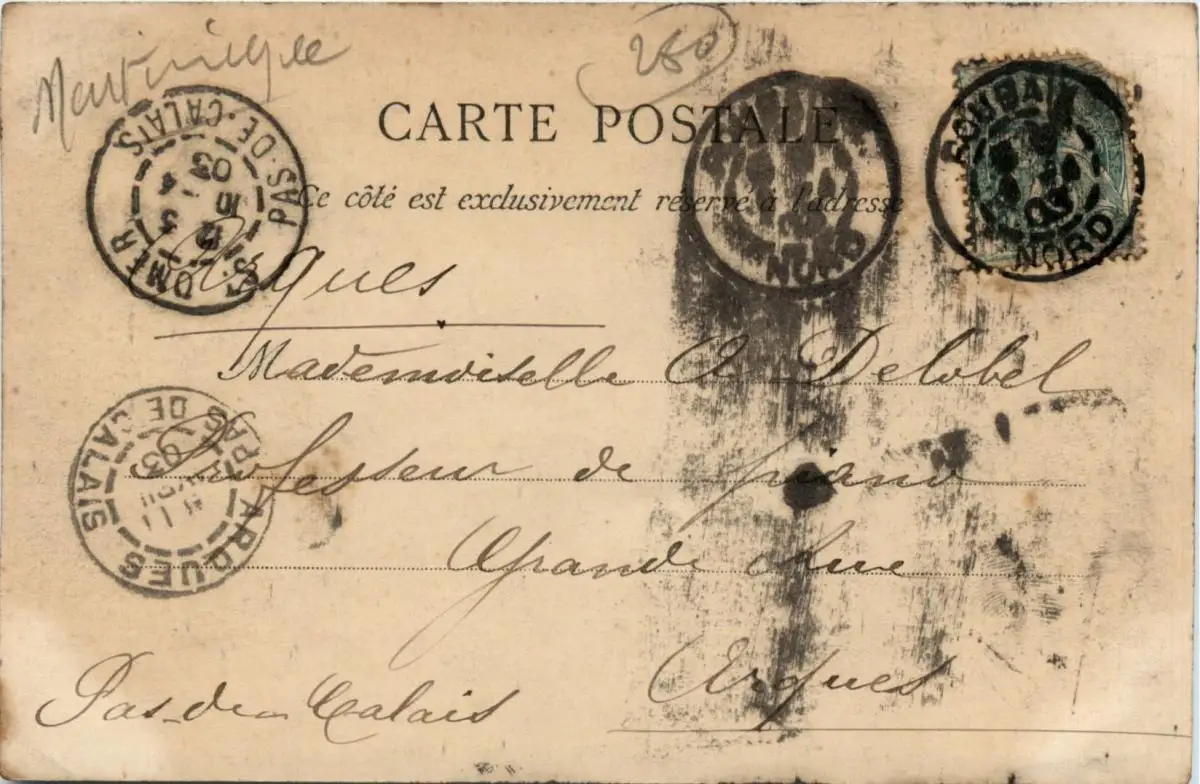 Martinique
280
CARTE POSTALE
Ce côté est exclusivement réservé à l'adresse
ROUBAIX
NORD
NORD
ST OMER
PAS-DE-CALAIS
03
Arques
Mademoiselle A Delobel
Professeur de piano
Grande Rue
Arques
Pas-de-Calais
ARQUES
PAS DE CALAIS
03